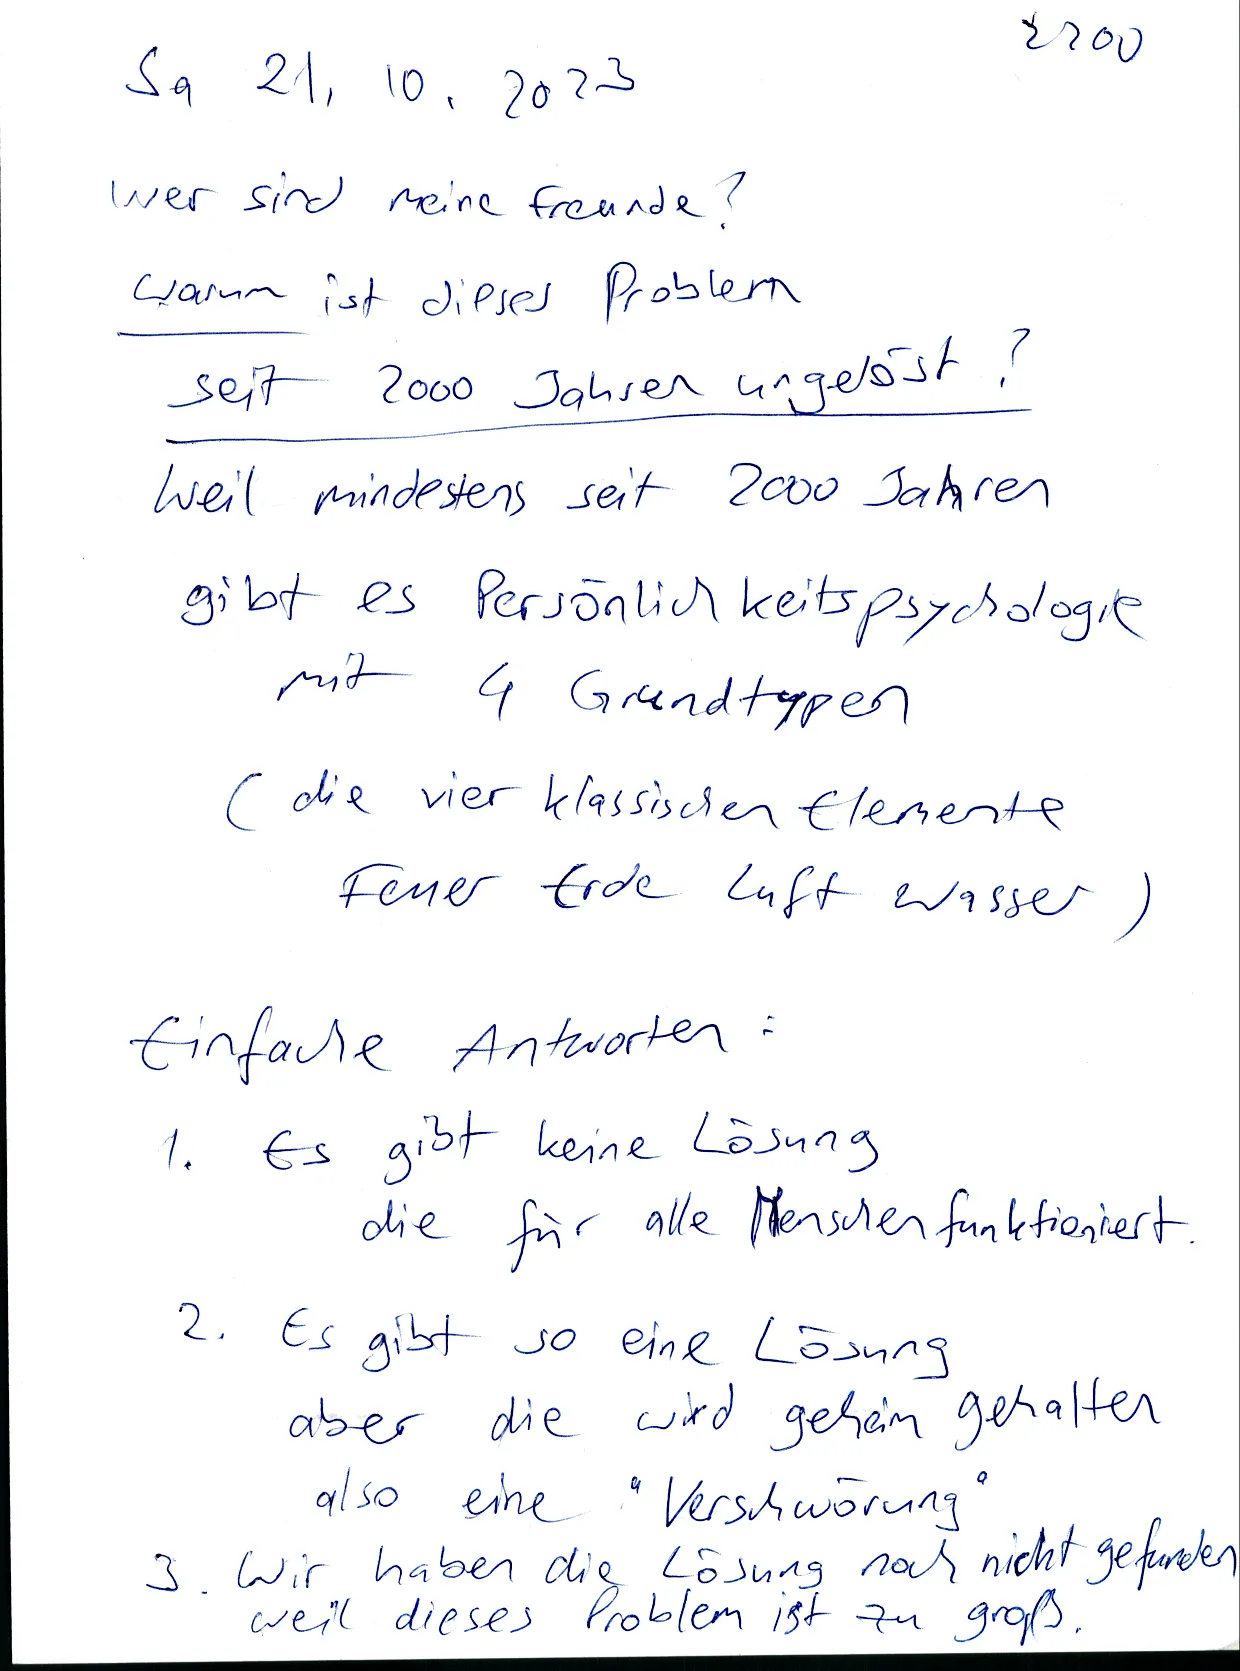 2200
Sa 21. 10. 2023
Wer sind meine Freunde?
Warum ist dieses Problem
seit 2000 Jahren ungelöst?
Weil mindestens seit 2000 Jahren
gibt es Persönlichkeitspsychologie
mit 4 Grundtypen
(die vier klassischen Elemente
Feuer Erde Luft Wasser)
Einfache Antworten:
1. Es gibt keine Lösung
die für alle Menschen funktioniert.
2. Es gibt so eine Lösung
aber die wird geheim gehalten
also eine "Verschwörung"
3. Wir haben die Lösung noch nicht gefunden
weil dieses Problem ist zu groß.